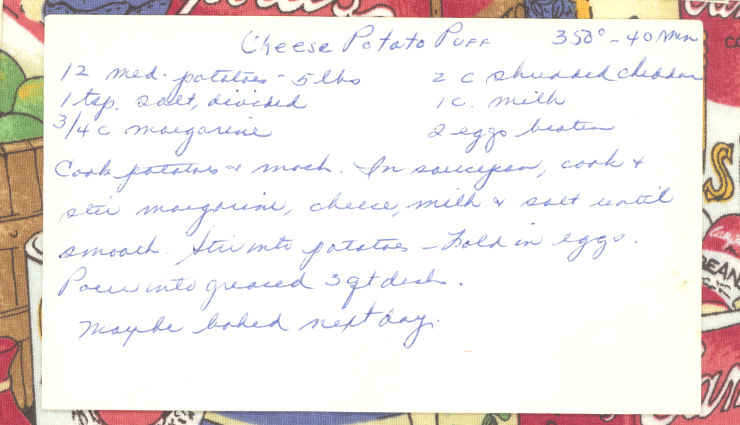 Cheese Potato Puff 350° - 40 min
12 med. potatoes - 5 lbs 2 c. shredded cheddar
1 tsp. salt, divided 1 c. milk
3/4 c margarine 2 eggs beaten
Cook potatoes & mash. In saucepan, cook &
stir margarine, cheese, milk & salt until
smooth. Stir into potatoes - Fold in eggs.
Pour into greased 3 qt dish.
Maybe baked next day.
BEAN